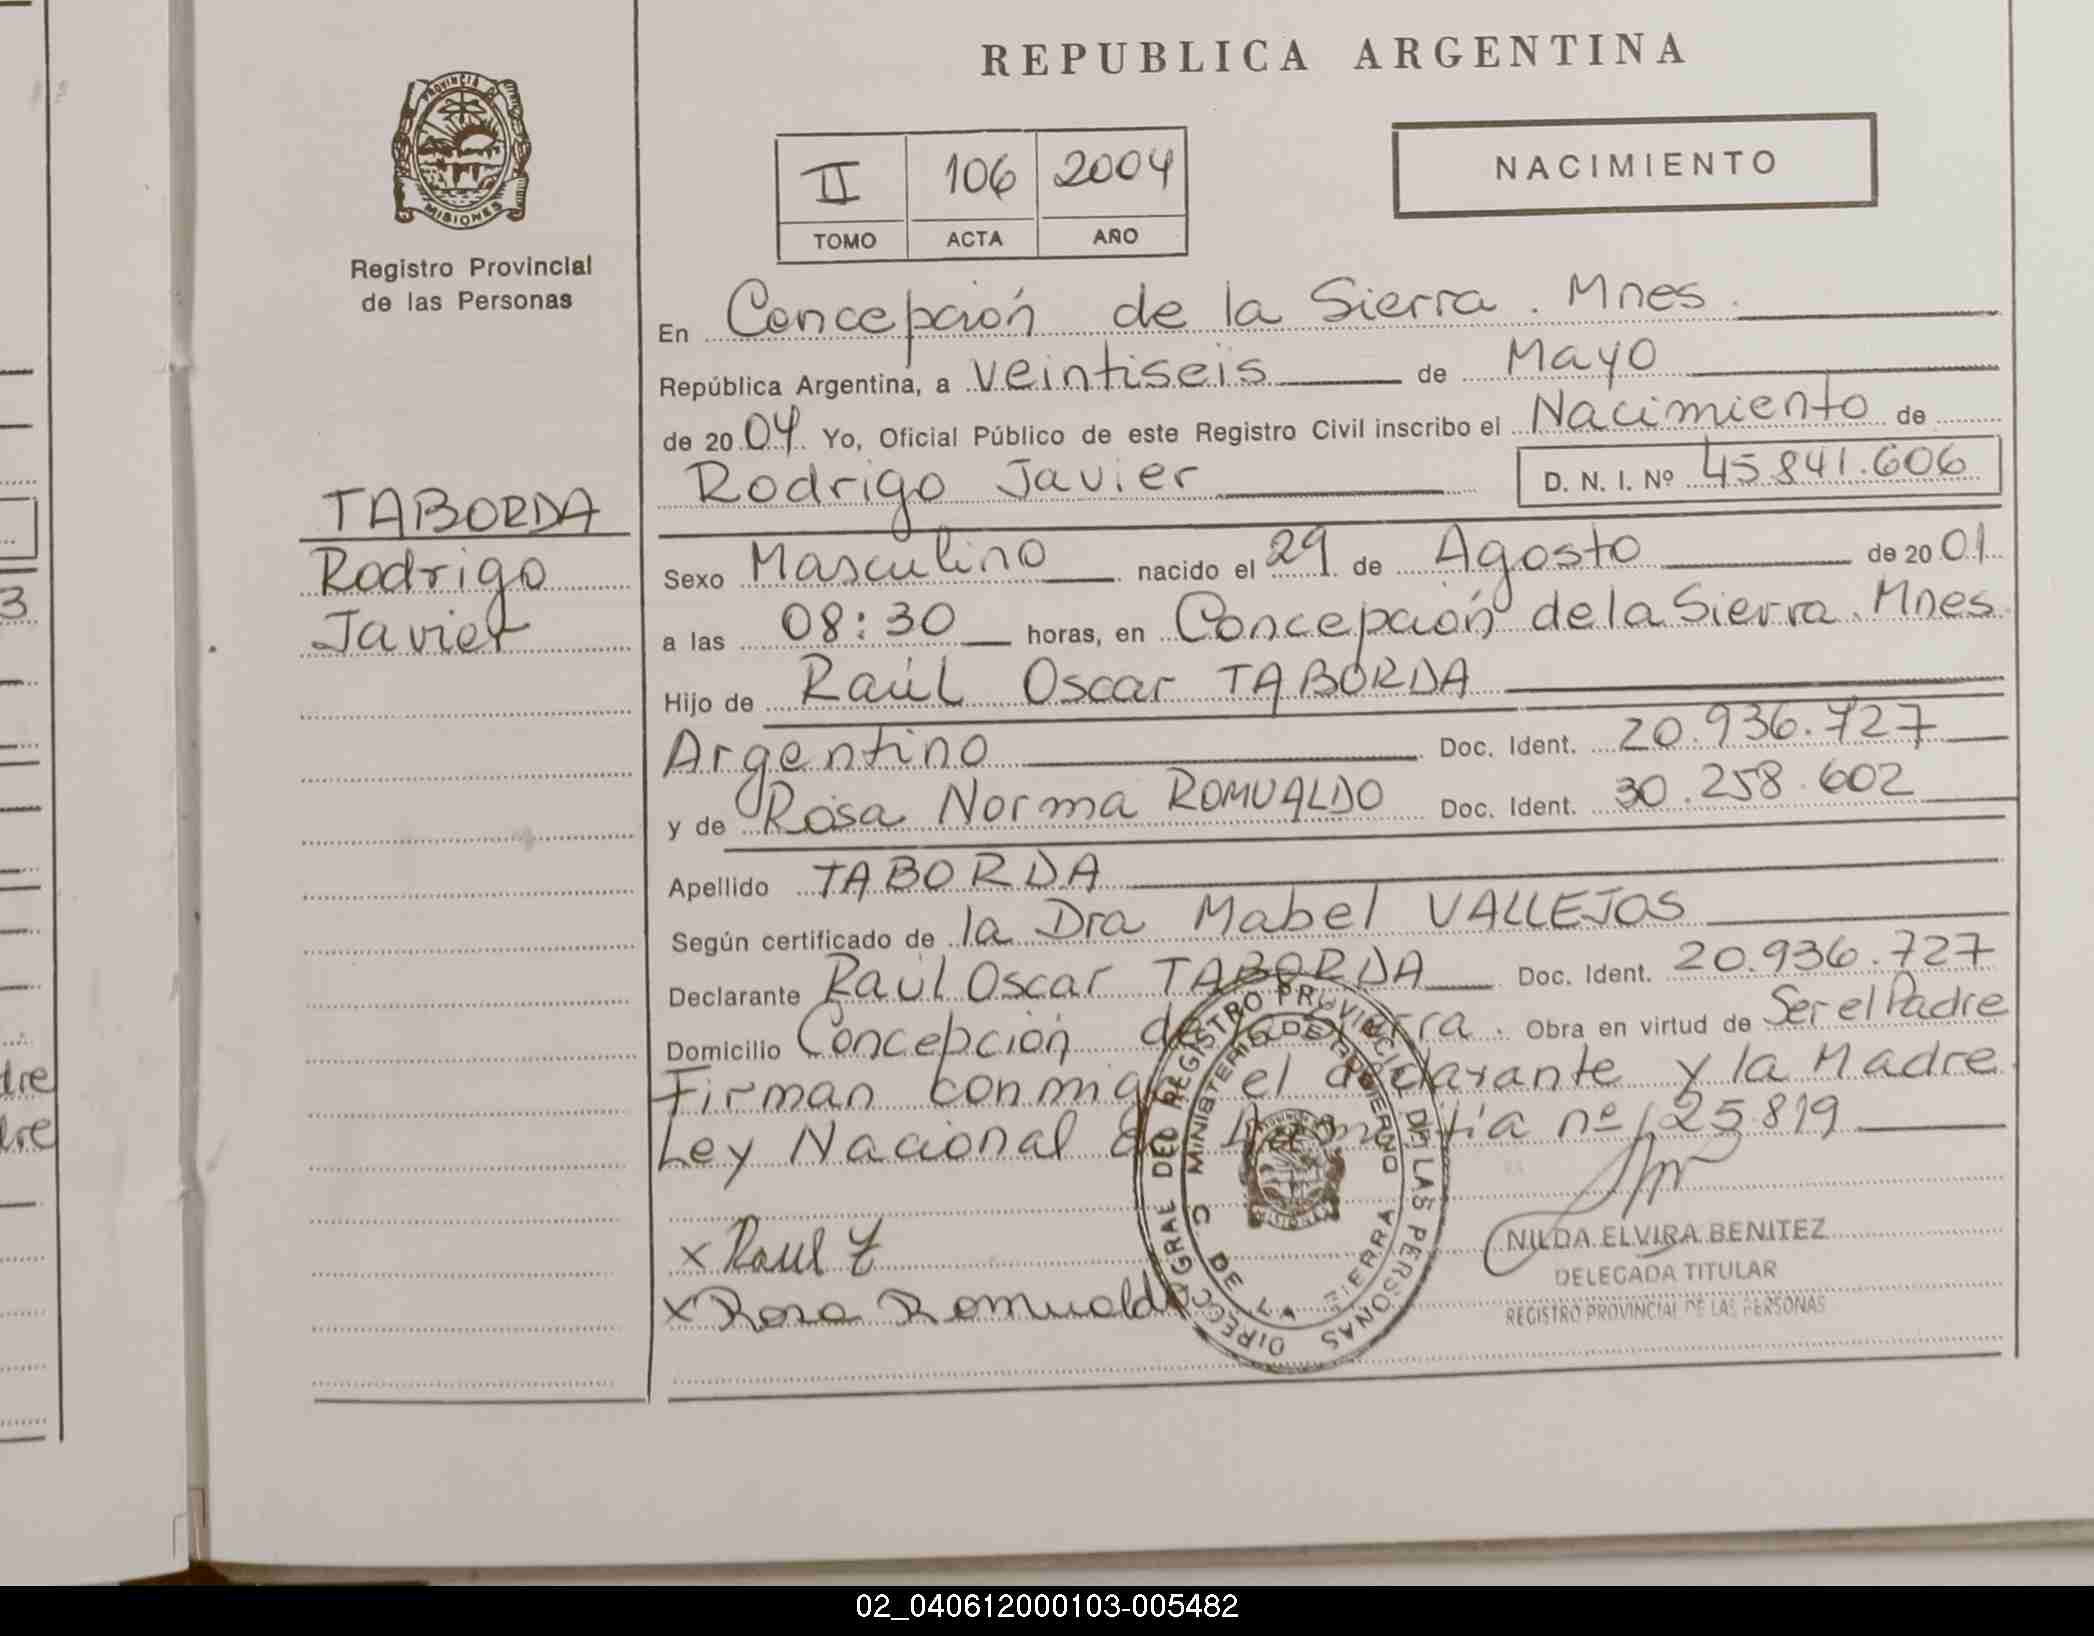 REPUBLICA ARGENTINA
PROVINCIA DE
MISIONES
Registro Provincial
de las Personas
II 106 2004
TOMO ACTA AÑO
NACIMIENTO
En Concepción de la Sierra . Mnes.
República Argentina, a veintiseis de Mayo
de 20 04 Yo, Oficial Público de este Registro Civil inscribo el Nacimiento de
Rodrigo Javier D. N. I. Nº 45.841.606
TABORDA
Rodrigo
Javier
Sexo Masculino nacido el 29 de Agosto de 20 01
a las 08:30 horas, en Concepción de la Sierra. Mnes.
Hijo de Raúl Oscar TABORDA
Argentino Doc. Ident. 20.936.727
y de Rosa Norma ROMUALDO Doc. Ident. 30.258.602
Apellido TABORDA
Según certificado de la Dra Mabel VALLEJOS
Declarante Raúl Oscar TABORDA Doc. Ident. 20.936.727
Domicilio Concepción de la Sierra. Obra en virtud de Ser el Padre
Firman conmigo el declarante y la Madre
Ley Nacional de Amnistía nº 25819
x Raul T
x Rosa Romualdo
DIRECC. GRAL DEL REGISTRO PROVINCIAL DE LAS PERSONAS
MINISTERIO DE GOBIERNO
C. DE LA SIERRA
NILDA ELVIRA BENITEZ
DELEGADA TITULAR
REGISTRO PROVINCIAL DE LAS PERSONAS
3
dre
dre
02_040612000103-005482